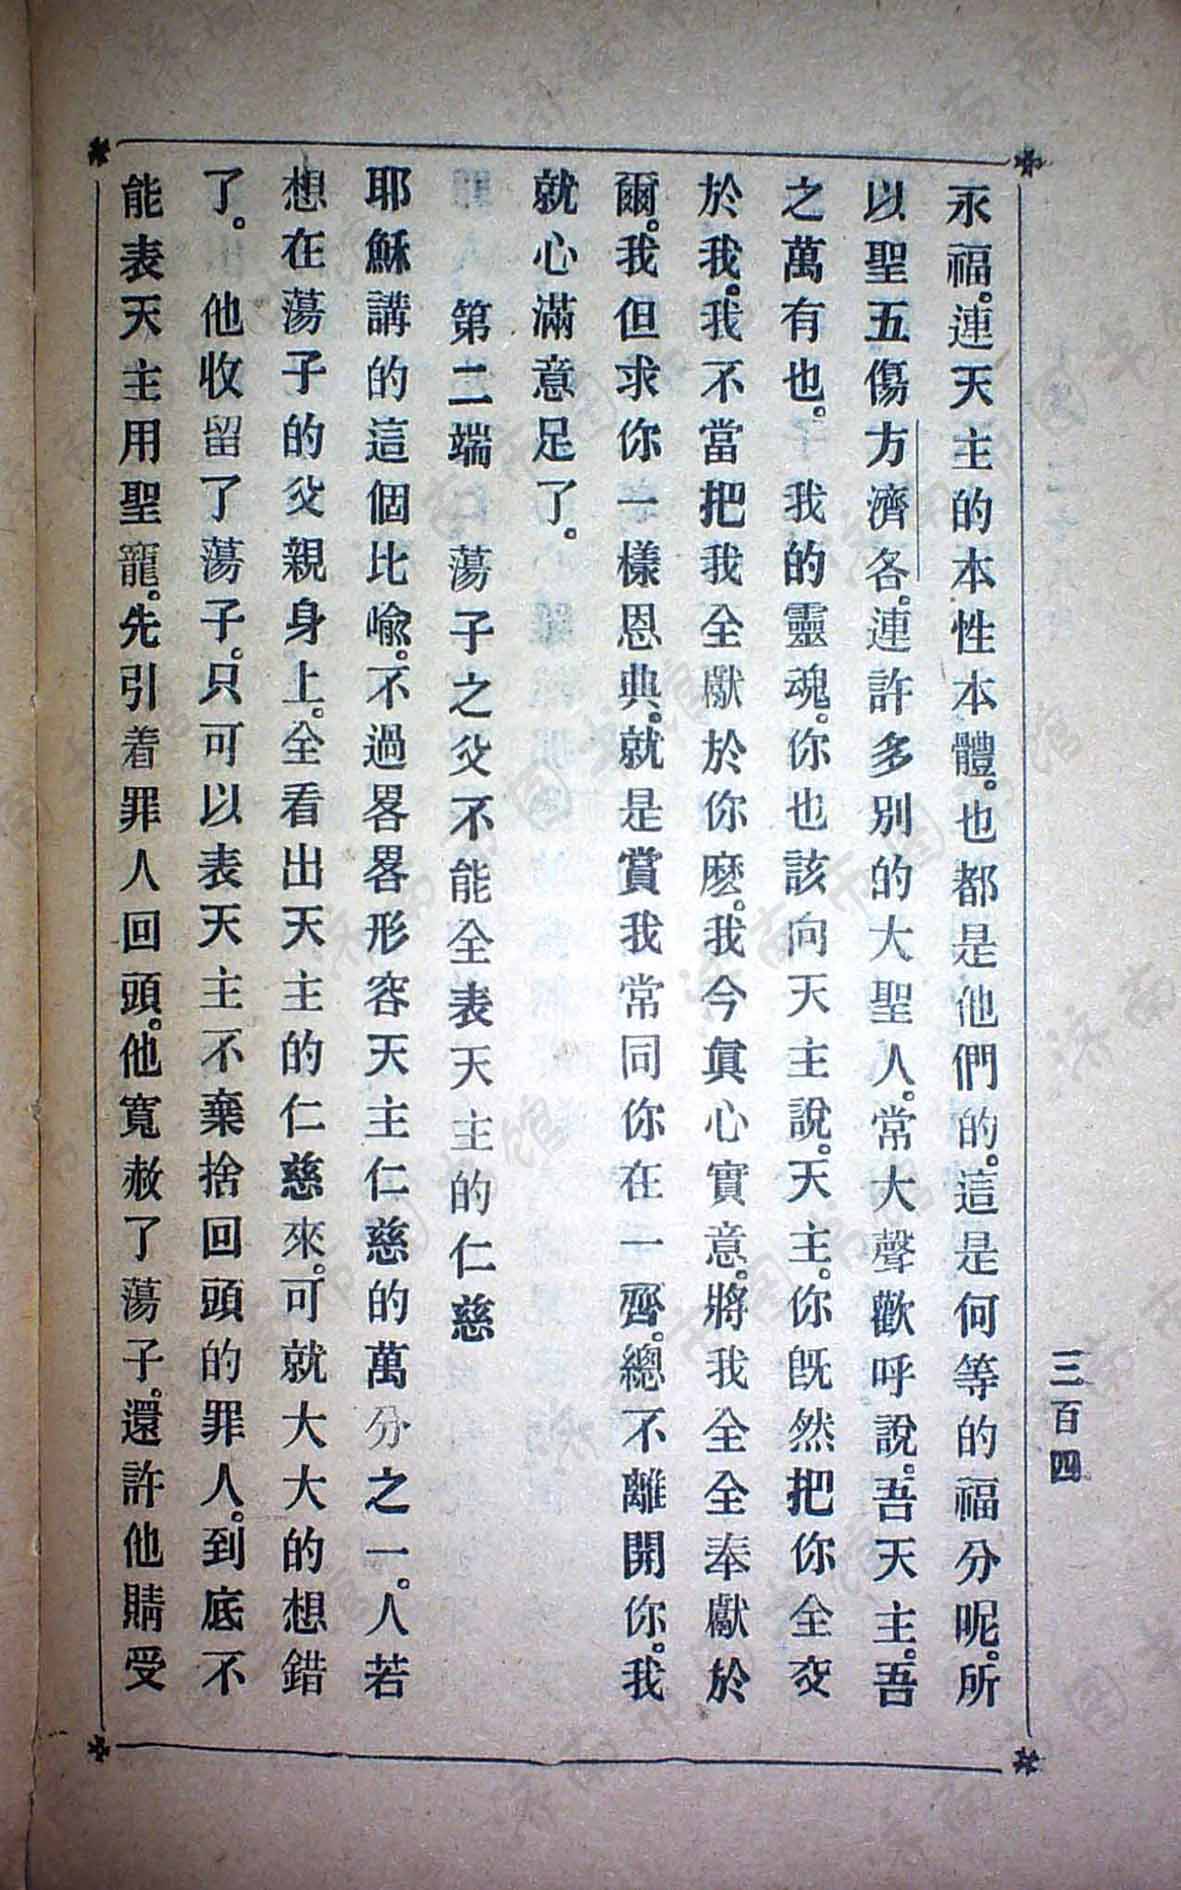 三百四
永福。連天主的本性本體。也都是他們的。這是何等的福分呢。所
以聖五傷方濟各。連許多別的大聖人。常大聲歡呼說。吾天主。吾
之萬有也。我的靈魂。你也該向天主說。天主。你旣然把你全交
於我。我不當把我全獻於你麽。我今眞心實意。將我全全奉獻於
爾。我但求你一樣恩典。就是賞我常同你在一齊。總不離開你。我
就心滿意足了。
第二端 蕩子之父不能全表天主的仁慈
耶穌講的這個比喩。不過畧畧形容天主仁慈的萬分之一。人若
想在蕩子的父親身上。全看出天主的仁慈來。可就大大的想錯
了。他收留了蕩子。只可以表天主不棄捨回頭的罪人。到底不
能表天主用聖寵。先引着罪人回頭。他寬赦了蕩子。還許他賙受